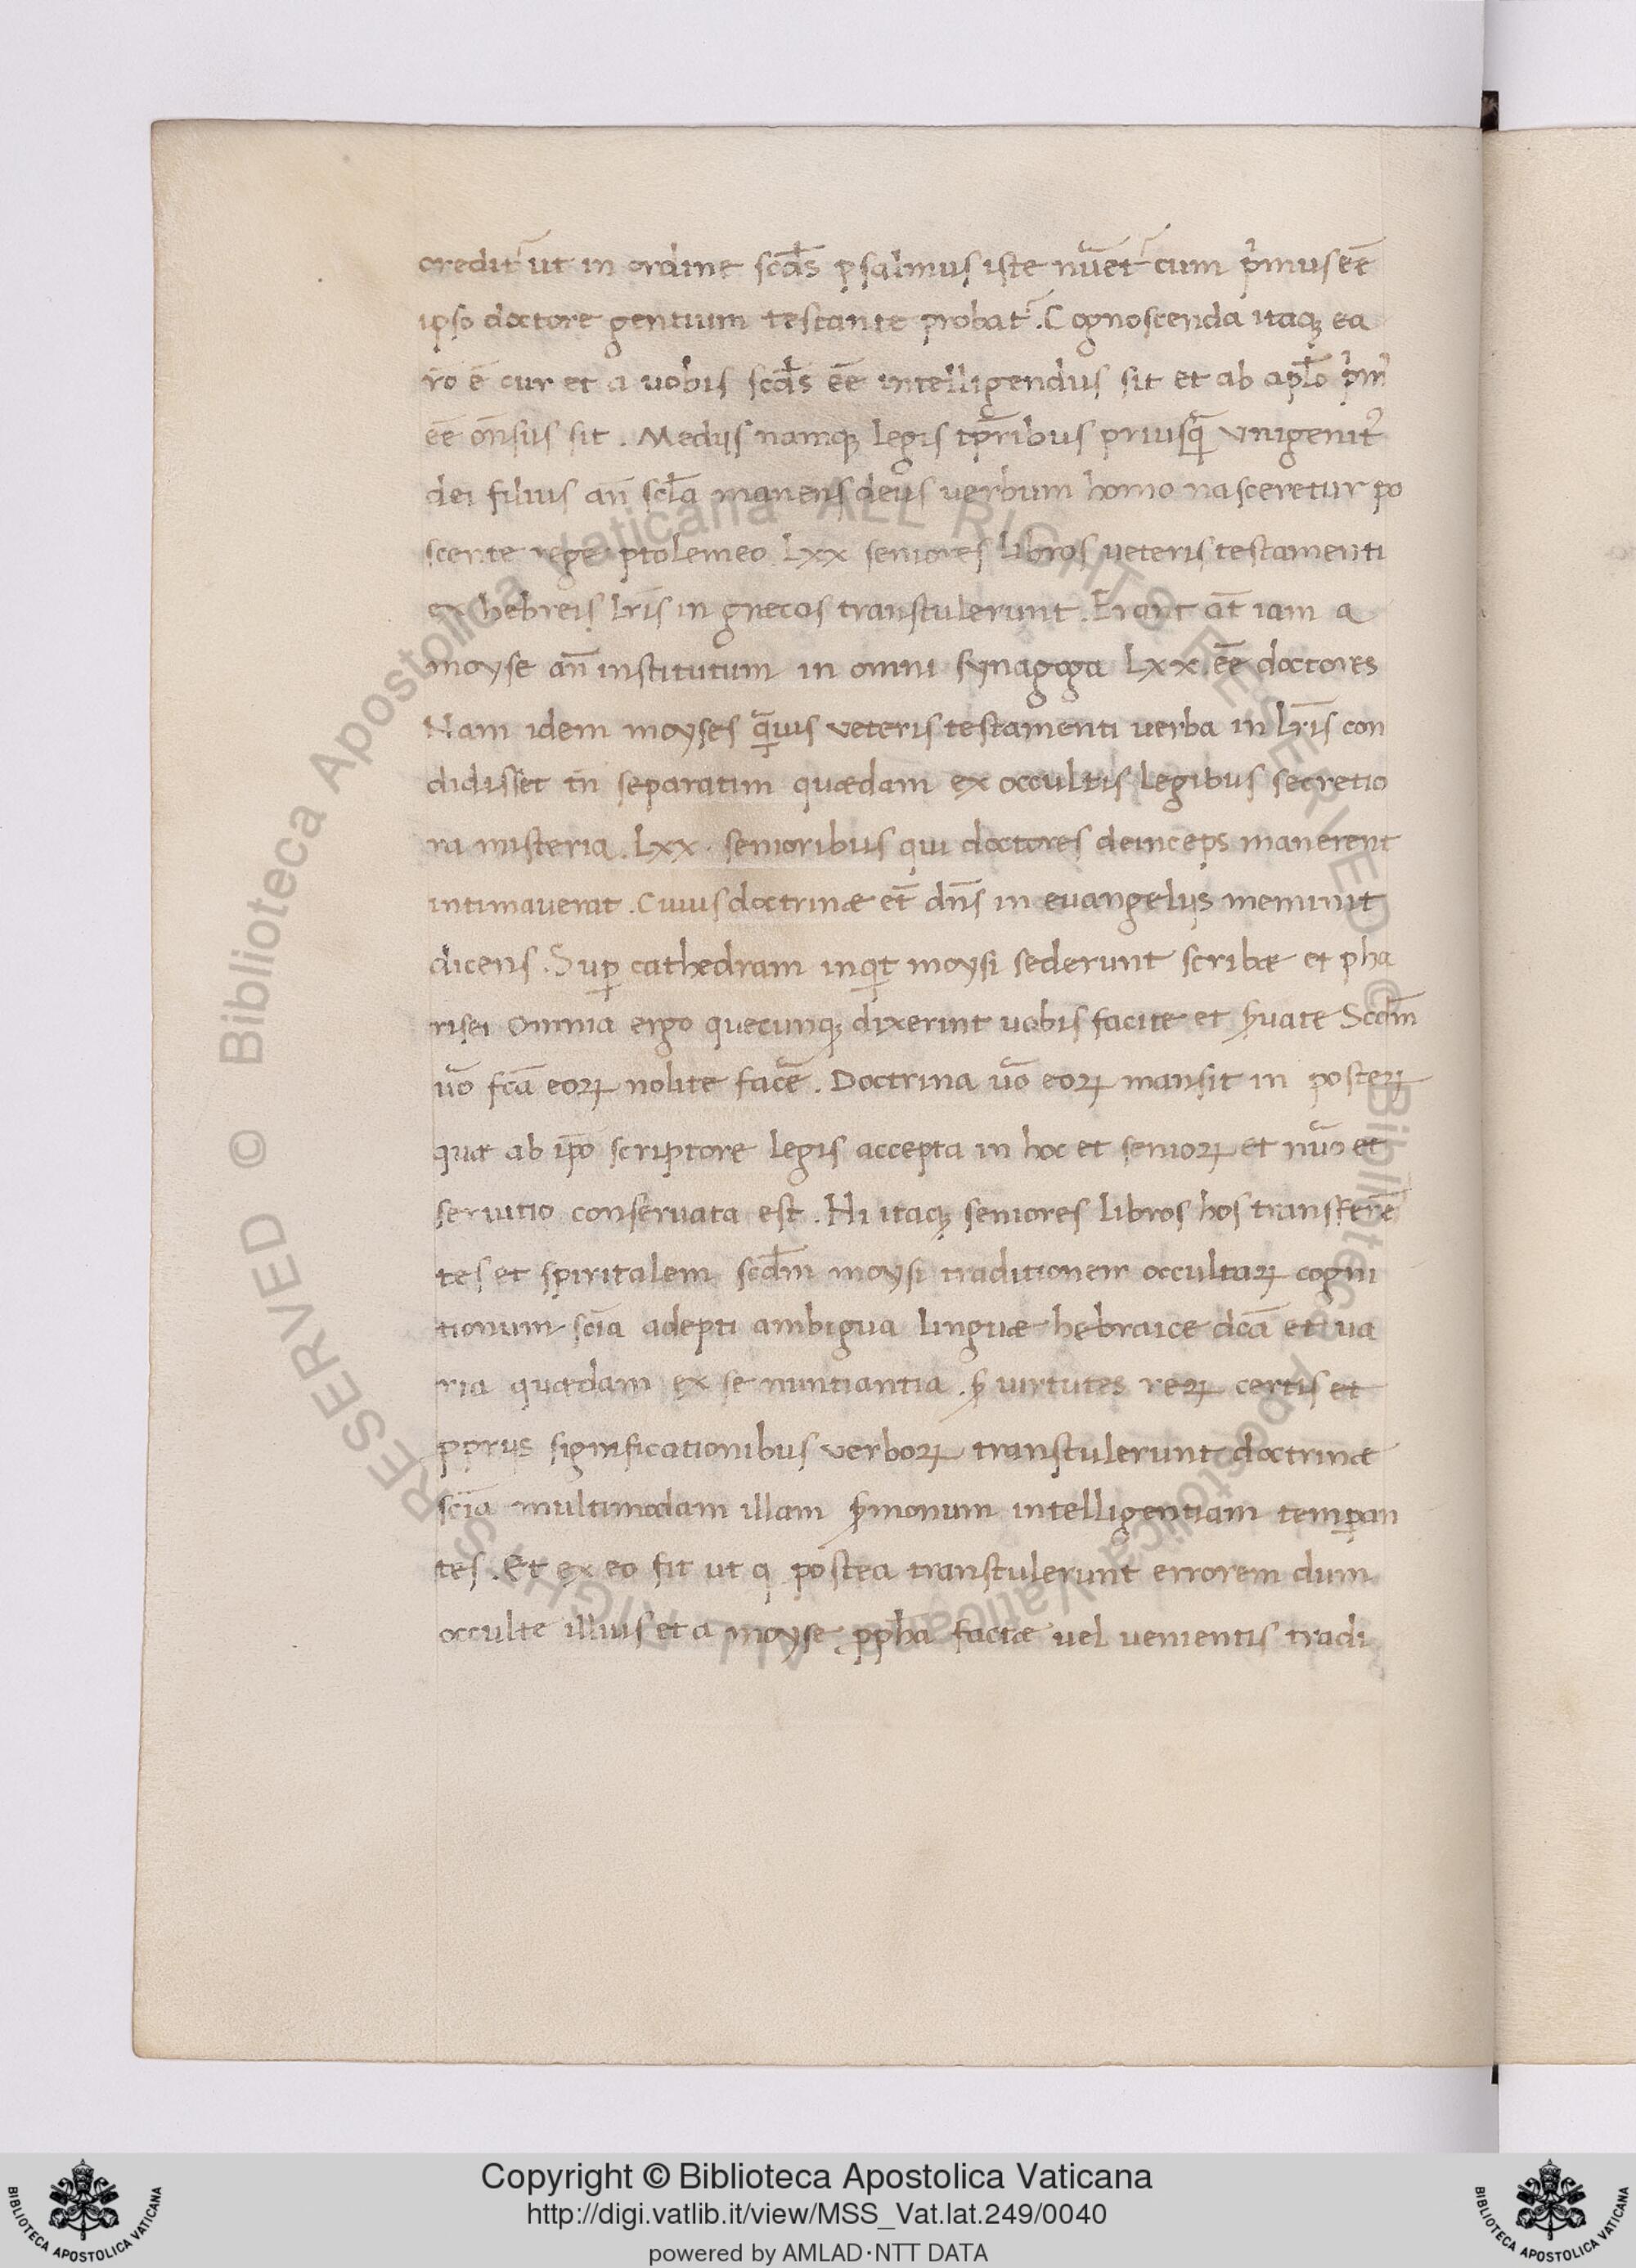 creditʳ ut in ordine scđs psalmus iste nūetʳ cum pʳmus eē
ipso doctore gentium testante probatʳ. Cognoscenda itaqꝫ ea
rō ē cur et a uobis scđs eē intelligendus sit et ab aplō pʳm
eē onſus sit. Medijs namqꝫ legis tꝑribus priusꝗ̄ Vnigenitʳ
dei filius añ scl̄a manens deus uerbum homo nasceretur po
scente rege ptolemeo Lxx seniores libros ueteris testamenti
ex hebreis lr̄is in grecas transtulerunt. Erant at̄ iam a
moyse añ institutum in omni synagoga Lxx eē doctores
Nam idem moyses ꝗ̄uis veteris testamenti uerba in lr̄is con
didisset tn̄ separatim quædam ex occultis legibus secretio
ra misteria. Lxx. senioribus qui doctores deinceps manerent
intimauerat. Cuius doctrinæ et̄ dn̄s in euangelijs meminit
dicens. Suꝑ cathedram inqͥt moysi sederunt scribæ et pha
risei Omnia ergo quecunqꝫ dixerint uobis facite et ẜuate Scđm
uō fc̄a eoꝝ nolite facē. Doctrina uō eoꝝ mansit in posteꝝ
quæ ab ip̄o scriptore legis accepta in hoc et senioꝝ et nūo et
seruitio conseruata est. Hi itaqꝫ seniores libros hos transferē
tes et spiritalem scđm moysi traditionem occultaꝝ cogni
tionum sciā adepti ambigua linguæ hebraice dcā et ua
ria quædam ex se nuntiantia. ẜ uirtutes reꝝ certis et
ꝓprijs significationibus verboꝝ transtulerunt doctrinæ
sciā multimodam illam ẜmonum intelligentiam temꝑan
tes. Et ex eo fit ut q postea transtulerunt errorem dum
occulte illius et a moyse ꝓpħa factæ uel uenientis tradi
Copyright © Biblioteca Apostolica Vaticana
http://digi.vatlib.it/view/MSS_Vat.lat.249/0040
powered by AMLAD·NTT DATA
BIBLIOTECA APOSTOLICA VATICANA
BIBLIOTECA APOSTOLICA VATICANA
© Biblioteca Apostolica Vaticana ALL RIGHTS RESERVED
© Biblioteca Apostolica Vaticana ALL RIGHTS RESERVED